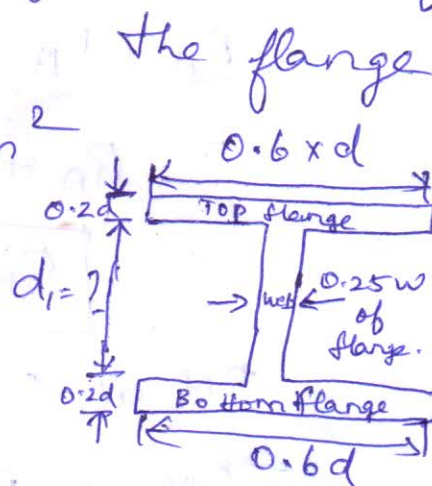 the flange
2
0.6 x d
0.2d
TOP flange
d₁ = ?
web
0.25w
of
flange.
0.2d
Bottom flange
0.6d